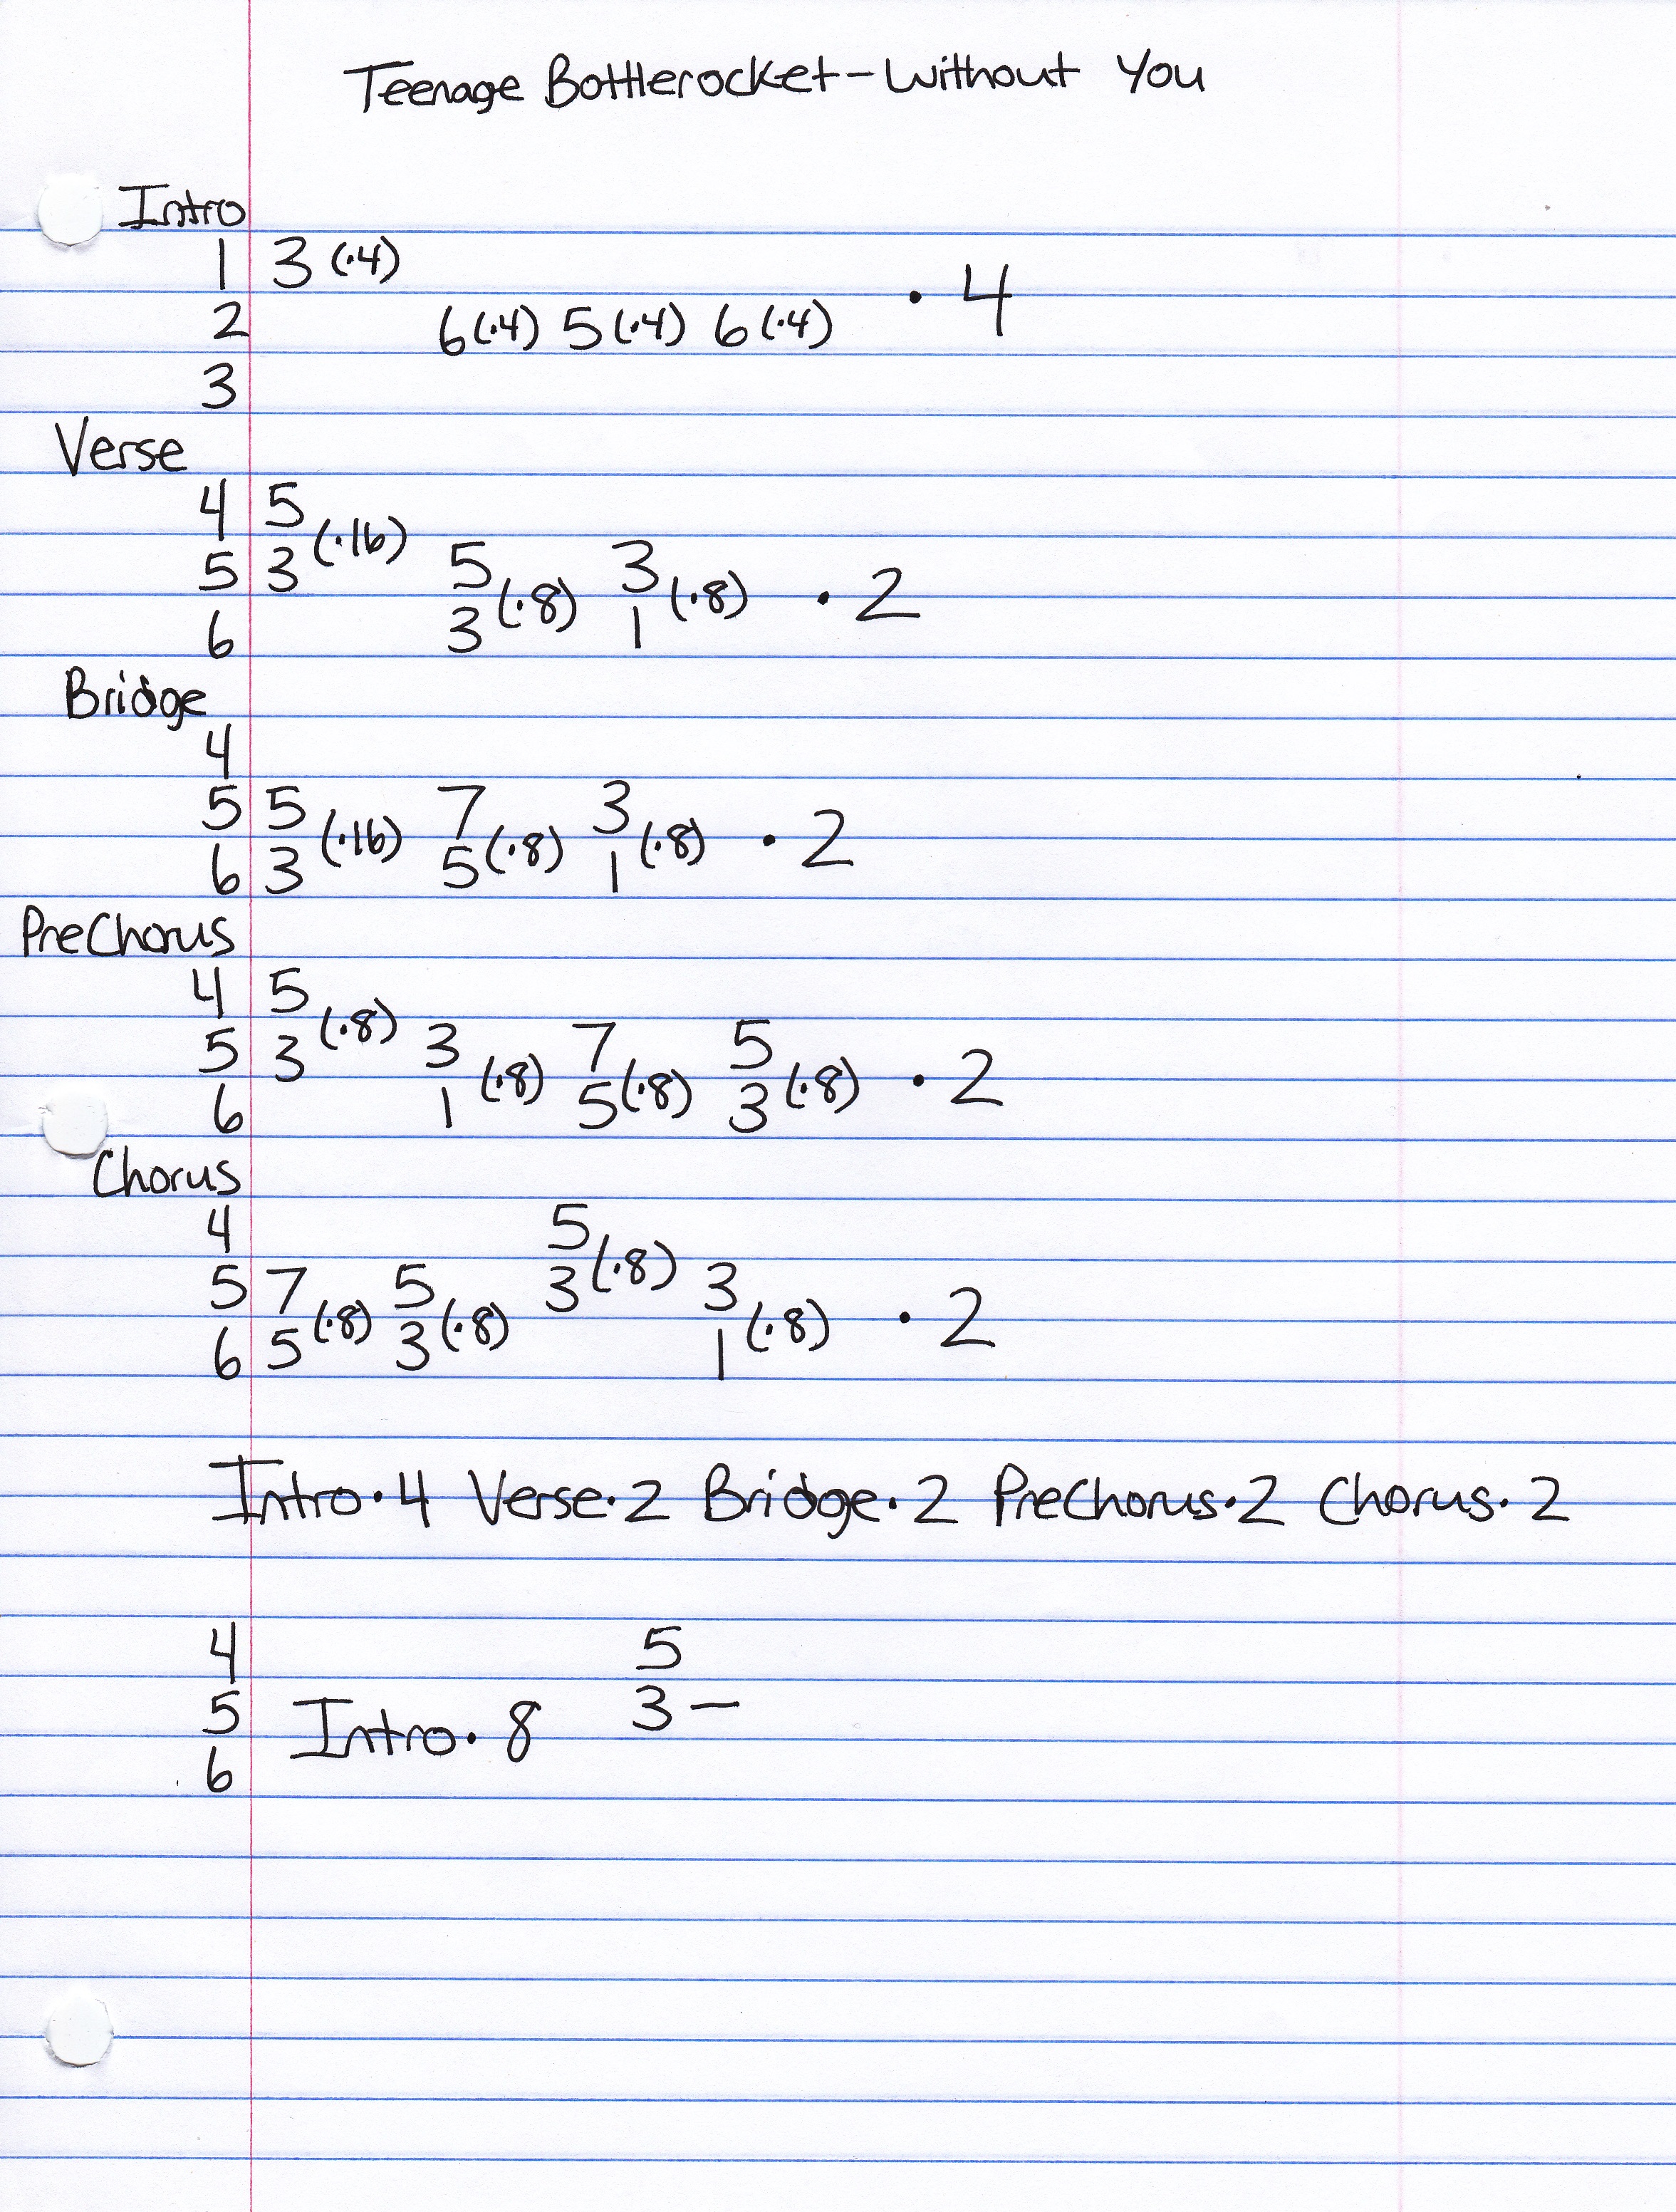 Teenage Bottlerocket - Without You
Intro
1 3 (·4)
2 6 (·4) 5 (·4) 6 (·4) · 4
3
Verse
4 5
5 3 (·16) 5 3
6 3 (·8) 1 (·8) · 2
Bridge
4
5 5 7 3
6 3 (·16) 5 (·8) 1 (·8) · 2
PreChorus
4 5
5 3 (·8) 3 7 5
6 1 (·8) 5 (·8) 3 (·8) · 2
Chorus
4 5
5 7 5 3 (·8) 3
6 5 (·8) 3 (·8) 1 (·8) · 2
Intro · 4 Verse · 2 Bridge · 2 PreChorus · 2 Chorus · 2
4 5
5 Intro · 8 3 —
6